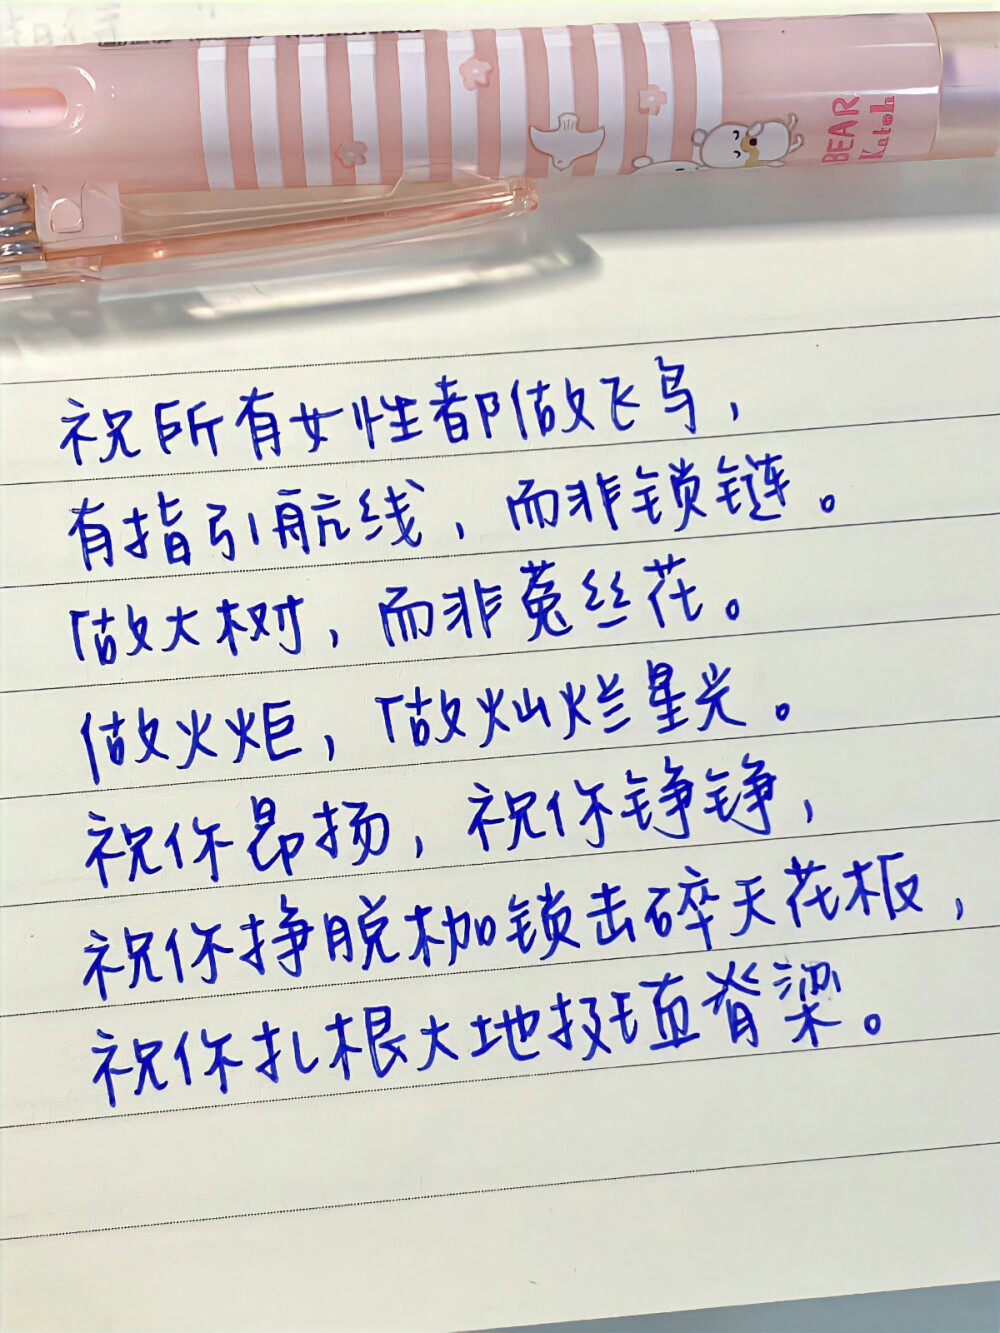 BEAR
Katoh
祝所有女性都做飞鸟，
有指引航线，而非锁链。
做大树，而非菟丝花。
做火炬，做灿烂星光。
祝你昂扬，祝你铮铮，
祝你挣脱枷锁击碎天花板，
祝你扎根大地挺直脊梁。